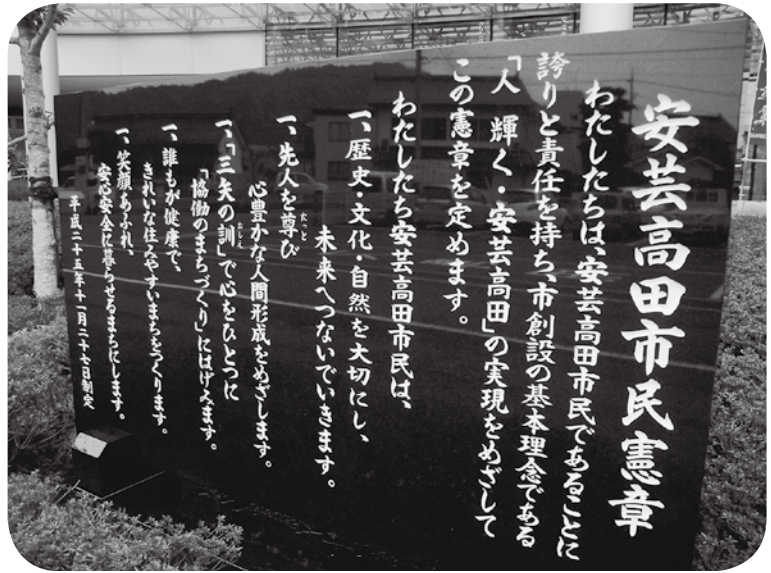 安芸高田市民憲章
わたしたちは、安芸高田市民であることに
誇りと責任を持ち、市創設の基本理念である
「人 輝く・安芸高田」の実現をめざして
この憲章を定めます。
わたしたち安芸高田市民は、
一、歴史・文化・自然を大切にし、
未来へつないでいきます。
一、先人を尊び
たっと
心豊かな人間形成をめざします。
一、「三矢の訓」で心をひとつに
おしえ
「協働のまちづくり」にはげみます。
一、誰もが健康で、
きれいな住みやすいまちをつくります。
一、笑顔あふれ、
安心安全に暮らせるまちにします。
平成二十五年十一月二十七日制定